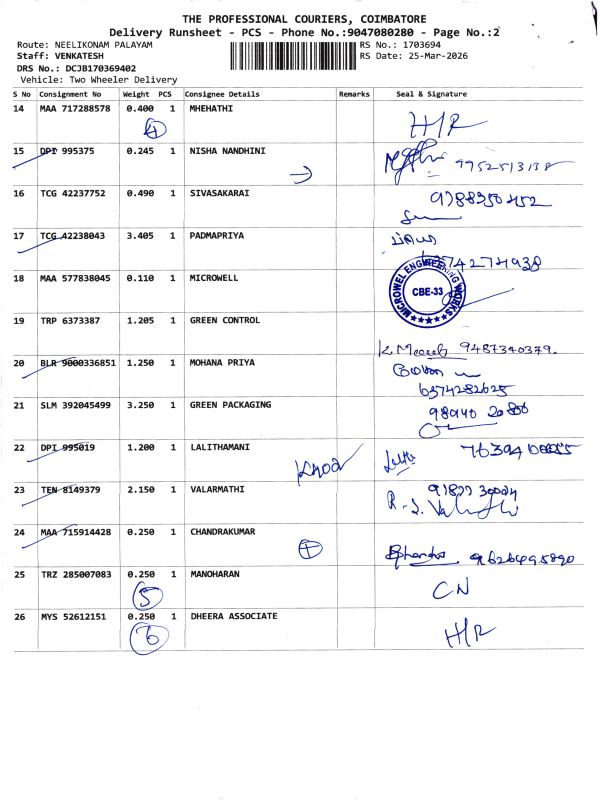 THE PROFESSIONAL COURIERS, COIMBATORE
Delivery Runsheet - PCS - Phone No.:9047080280 - Page No.:2
Route: NEELIKONAM PALAYAM
RS No.: 1703694
Staff: VENKATESH
RS Date: 25-Mar-2026
DRS No.: DCJB170369402
Vehicle: Two Wheeler Delivery
S No Consignment No Weight PCS Consignee Details Remarks Seal & Signature
14 MAA 717288578 0.400 1 MHEHATHI H/R
4
15 DPI 995375 0.245 1 NISHA NANDHINI 9952513138
16 TCG 42237752 0.490 1 SIVASAKARAI 9788350452
17 TCG 42238043 3.405 1 PADMAPRIYA
6374274938
18 MAA 577838045 0.110 1 MICROWELL MICROWEL ENGINEERING WORKS CBE-33
19 TRP 6373387 1.205 1 GREEN CONTROL
9487340379.
20 BLR 9000336851 1.250 1 MOHANA PRIYA
6374282625
21 SLM 392045499 3.250 1 GREEN PACKAGING
22 DPI 995019 1.200 1 LALITHAMANI
23 TEN 8149379 2.150 1 VALARMATHI
24 MAA 715914428 0.250 1 CHANDRAKUMAR
25 TRZ 285007083 0.250 1 MANOHARAN CN
5
26 MYS 52612151 0.250 1 DHEERA ASSOCIATE H/R
6